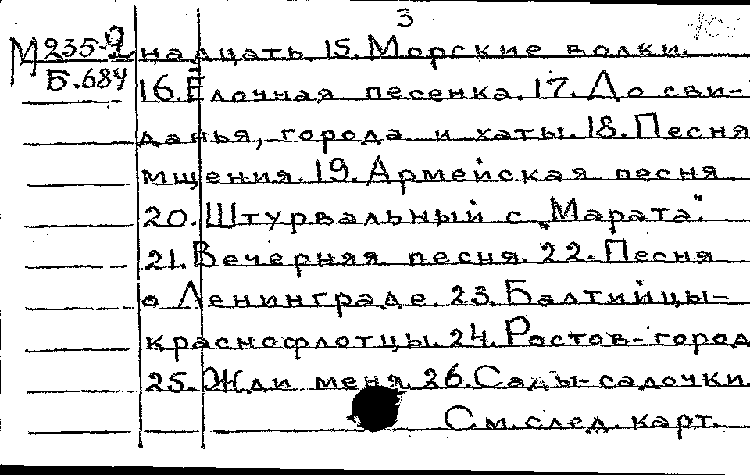 3
М 235-2 надцать. 15. Морские волки.
Б.684 16. Ёлочная песенка. 17. До сви-
данья, города и хаты. 18. Песня
мщения. 19. Армейская песня
20. Штурвальный с „Марата".
21. Вечерняя песня. 22. Песня
о Ленинграде. 23. Балтийцы-
краснофлотцы. 24. Ростов-город
25. Жди меня. 26. Сады-садочки
См. след. карт.